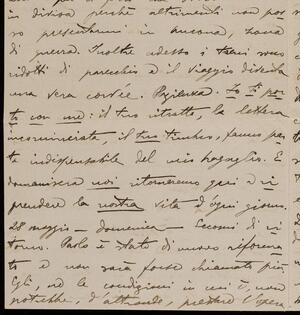 in divisa perchè altrimenti non pos
so presentarmi in Ancona, zona
di guerra. Inoltre adesso i treni sono
ridotti di parecchio e il viaggio diventa
una vera corvée. Pazienza. Io ti por
to con me: il tuo ritratto, la lettera
incominciata, il tuo timbro, fanno par
te indispensabile del mio bagaglio. E
domani sera noi ritorneremo qui e ri
prendere la nostra vita d'ogni giorno.
28 maggio - domenica - Eccomi di ri
torno. Paolo è stato di nuovo riforma
to e non sarà forse chiamato più.
Egli, nelle condizioni in cui è, non
potrebbe, d'altronde, prestare l'opera